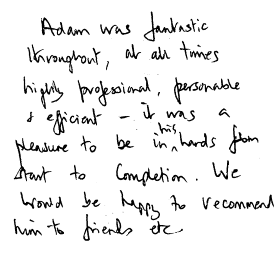 Adam was fantastic
throughout, at all times
highly professional, personable
& efficient - it was a
pleasure to be in his hands from
start to completion. We
would be happy to recommend
him to friends etc.